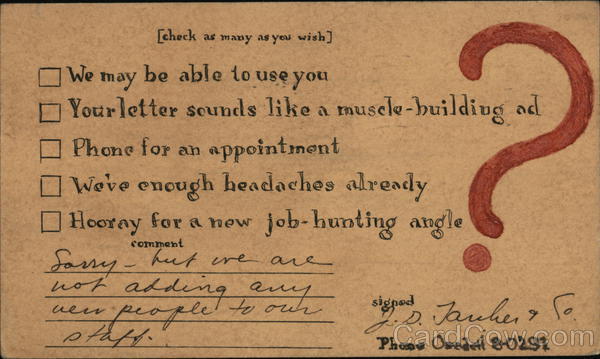 [check as many as you wish]
We may be able to use you
Your letter sounds like a muscle-building ad
Phone for an appointment
We've enough headaches already
Hooray for a new job-hunting angle
?
comment
Sorry - but we are
not adding any
new people to our
staff.
signed
& Co.
Phone
CardCow.com